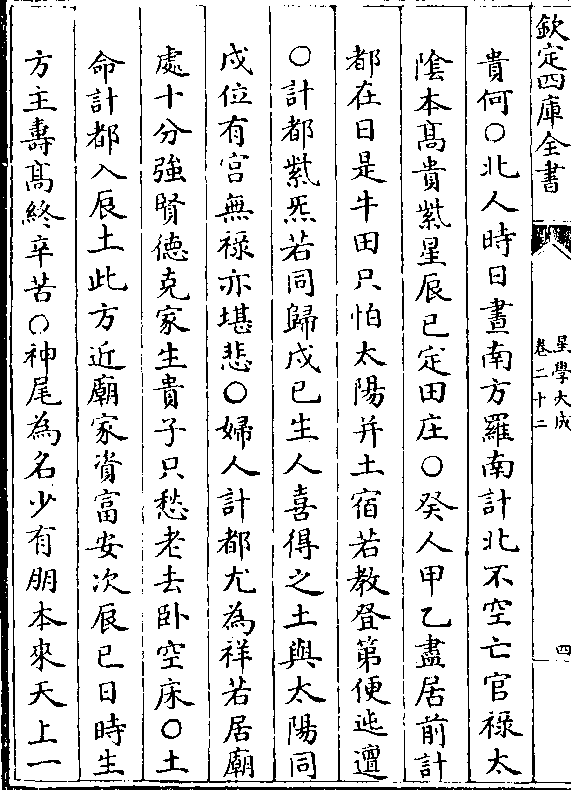 欽定四庫全書
星學大成
卷二十二
四
貴何○北人時日晝南方羅南計北不空亡官禄太
隂本髙貴紫星辰已定田庄○癸人甲乙盡居前計
都在日是牛田只怕太陽并土宿若教登第便迍邅
○計都紫炁若同歸戌已生人喜得之土與太陽同
戌位有宫無祿亦堪悲○婦人計都尤為祥若居廟
處十分強賢德克家生貴子只愁老去卧空床○土
命計都入辰土此方近廟家資富安次辰巳日時生
方主壽髙終辛苦○神尾為名少有朋本來天上一